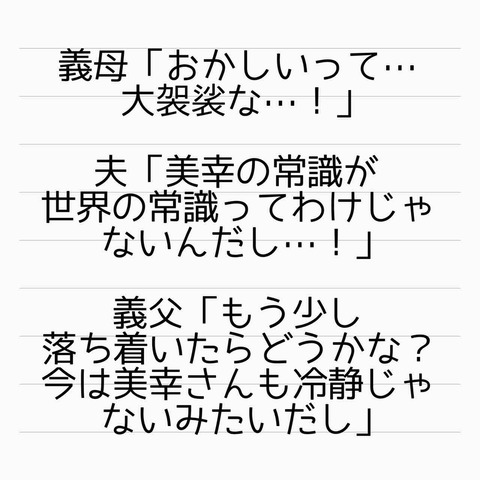 義母「おかしいって…
大袈裟な…！」
夫「美幸の常識が
世界の常識ってわけじゃ
ないんだし…！」
義父「もう少し
落ち着いたらどうかな？
今は美幸さんも冷静じゃ
ないみたいだし」